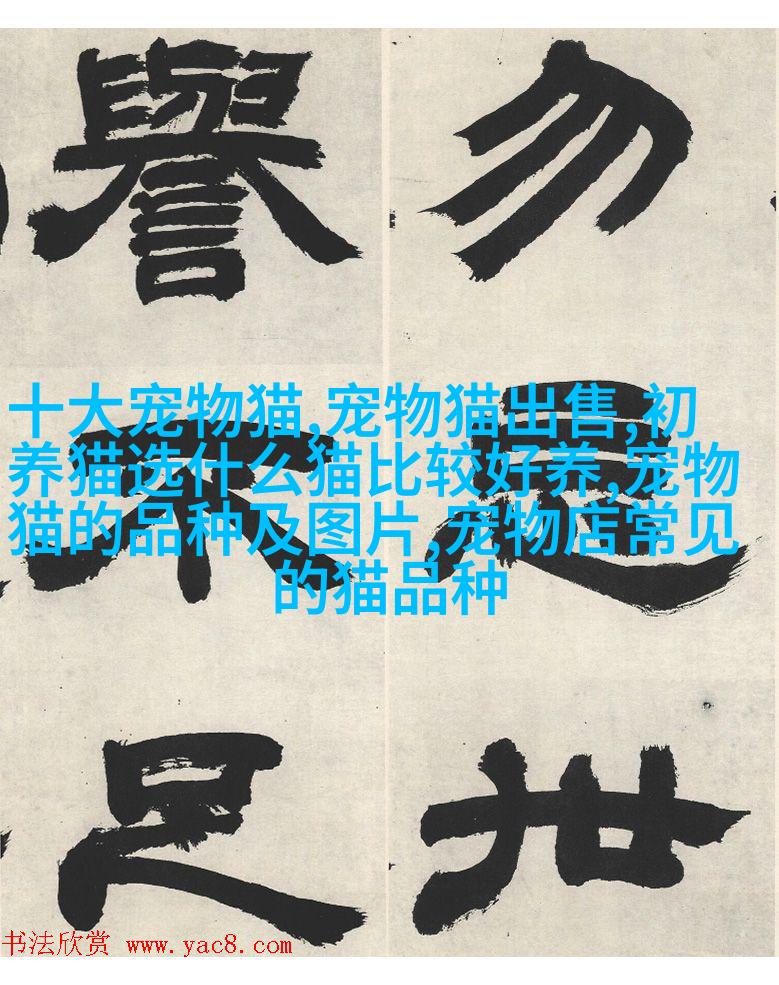 勿世
譽不足
十大宠物猫,宠物猫出售,初
养猫选什么猫比较好养,宠物
猫的品种及图片,宠物店常见
的猫品种
书法欣赏 www.yac8.com